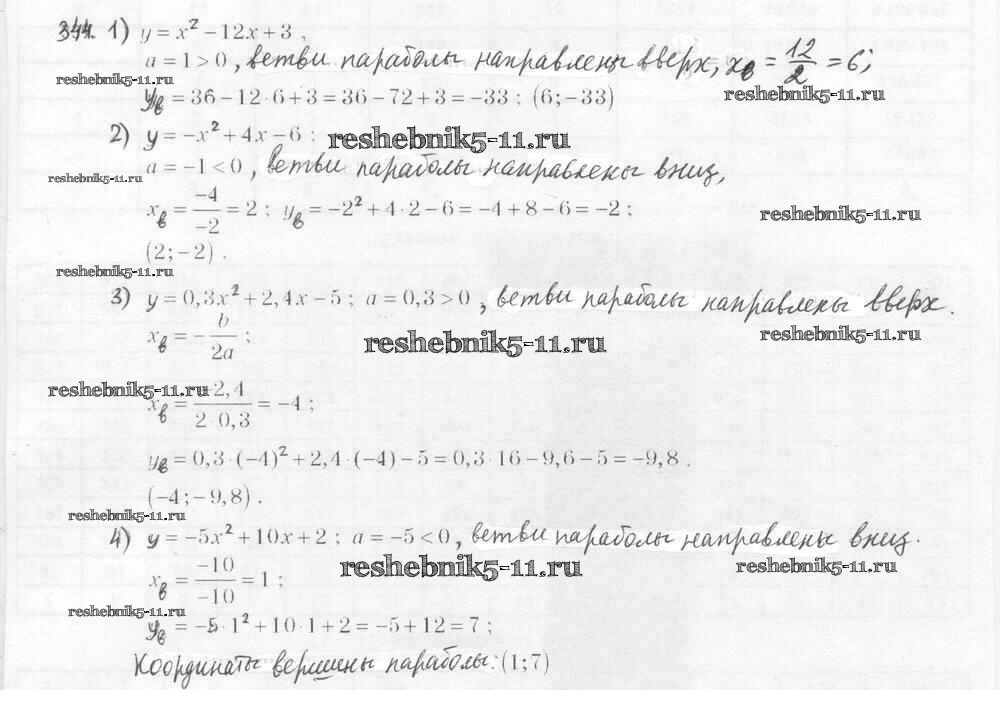 344. 1) y = x² − 12x + 3 ,
a = 1 > 0 , ветви параболы направлены вверх, xв = 12/2 = 6;
reshebnik5-11.ru
yв = 36 − 12·6 + 3 = 36 − 72 + 3 = −33 ; (6; −33)
reshebnik5-11.ru
2) y = −x² + 4x − 6 :
reshebnik5-11.ru
a = −1 < 0 , ветви параболы направлены вниз,
reshebnik5-11.ru
xв = −4/−2 = 2 ; yв = −2² + 4·2 − 6 = −4 + 8 − 6 = −2 ;
reshebnik5-11.ru
(2; −2) .
reshebnik5-11.ru
3) y = 0,3x² + 2,4x − 5 ; a = 0,3 > 0 , ветви параболы направлены вверх.
xв = − b/2a ;
reshebnik5-11.ru
reshebnik5-11.ru
reshebnik5-11.ru
xв = −2,4/2·0,3 = −4 ;
yв = 0,3·(−4)² + 2,4·(−4) − 5 = 0,3·16 − 9,6 − 5 = −9,8 .
(−4; −9,8) .
reshebnik5-11.ru
4) y = −5x² + 10x + 2 ; a = −5 < 0 , ветви параболы направлены вниз.
xв = −10/−10 = 1 ;
reshebnik5-11.ru
reshebnik5-11.ru
reshebnik5-11.ru
yв = −5·1² + 10·1 + 2 = −5 + 12 = 7 ;
Координаты вершины параболы: (1; 7)